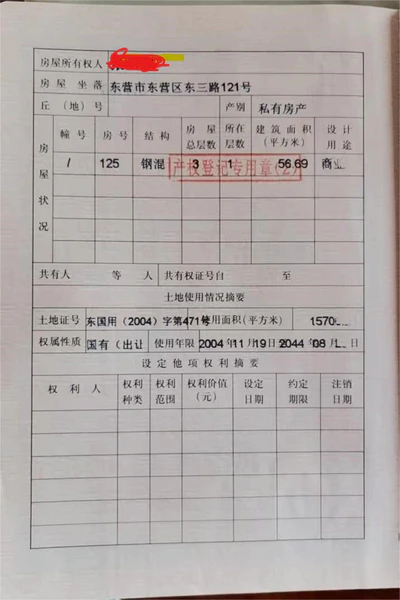 房屋所有权人
房屋坐落 东营市东营区东三路121号
丘（地）号 产别 私有房产
房屋状况
幢号 房号 结构 房屋总层数 所在层数 建筑面积（平方米） 设计用途
/ 125 钢混 3 1 56.69 商业
产权登记专用章(2)
共有人 等 人 共有权证号自 至
土地使用情况摘要
土地证号 东国用（2004）字第471号 使用面积（平方米） 1570
权属性质 国有（出让 使用年限 2004年11月19日 2044年08月 日
设定他项权利摘要
权利人 权利种类 权利范围 权利价值（元） 设定日期 约定期限 注销日期